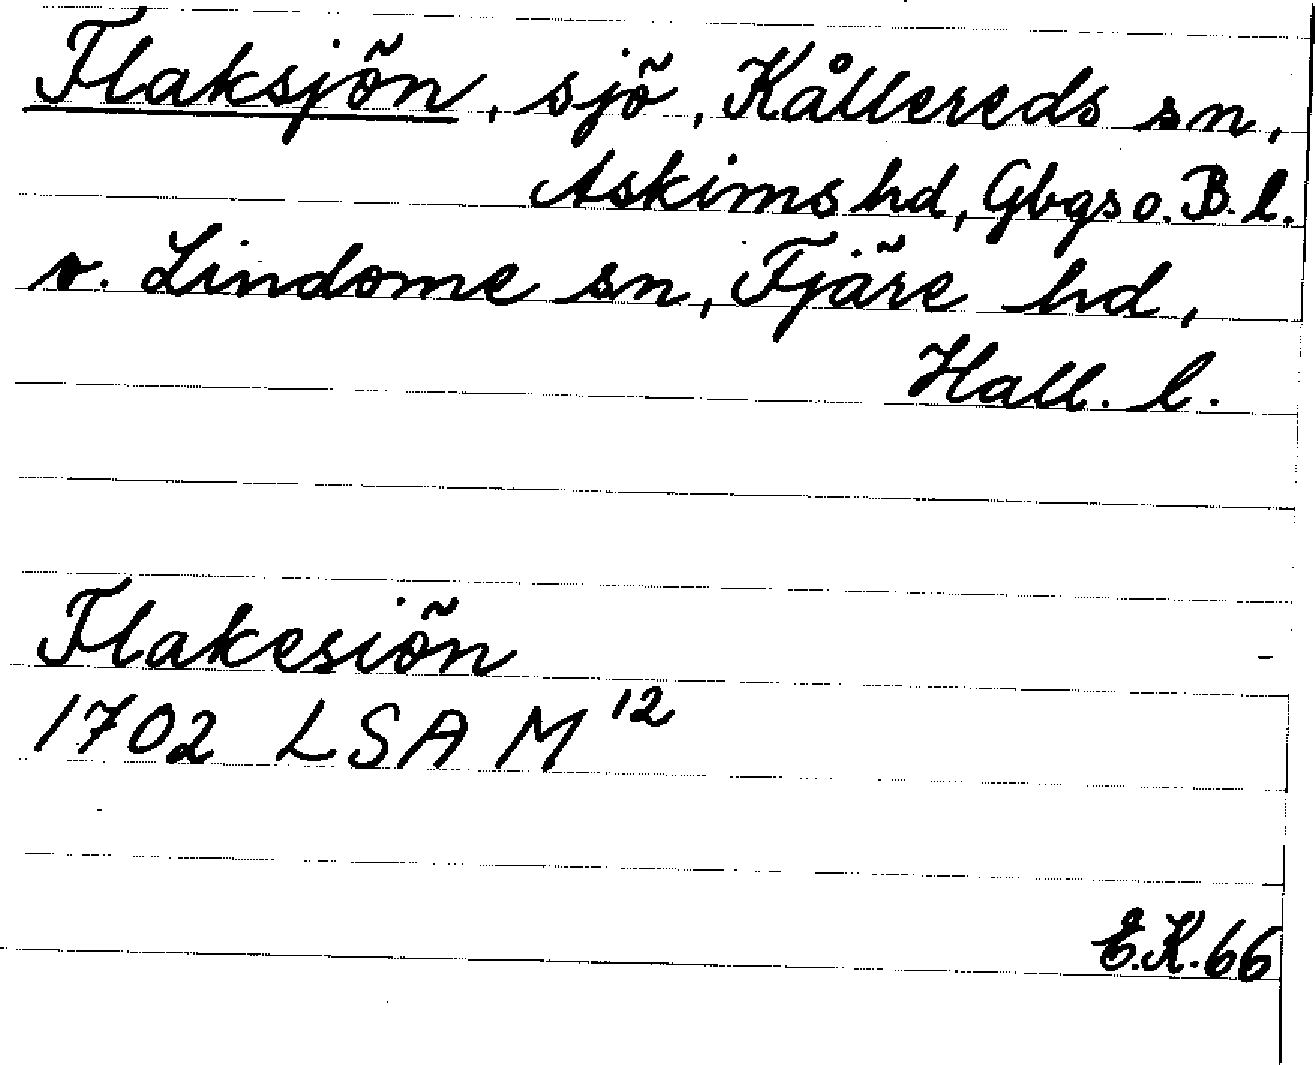 Flaksjön, sjö, Kållereds sn,
Askims hd, Gbgs o. B. l.
o. Lindome sn, Fjäre hd,
Hall. l.
Flakesiön
1702 LSA M 12
E.K. 66